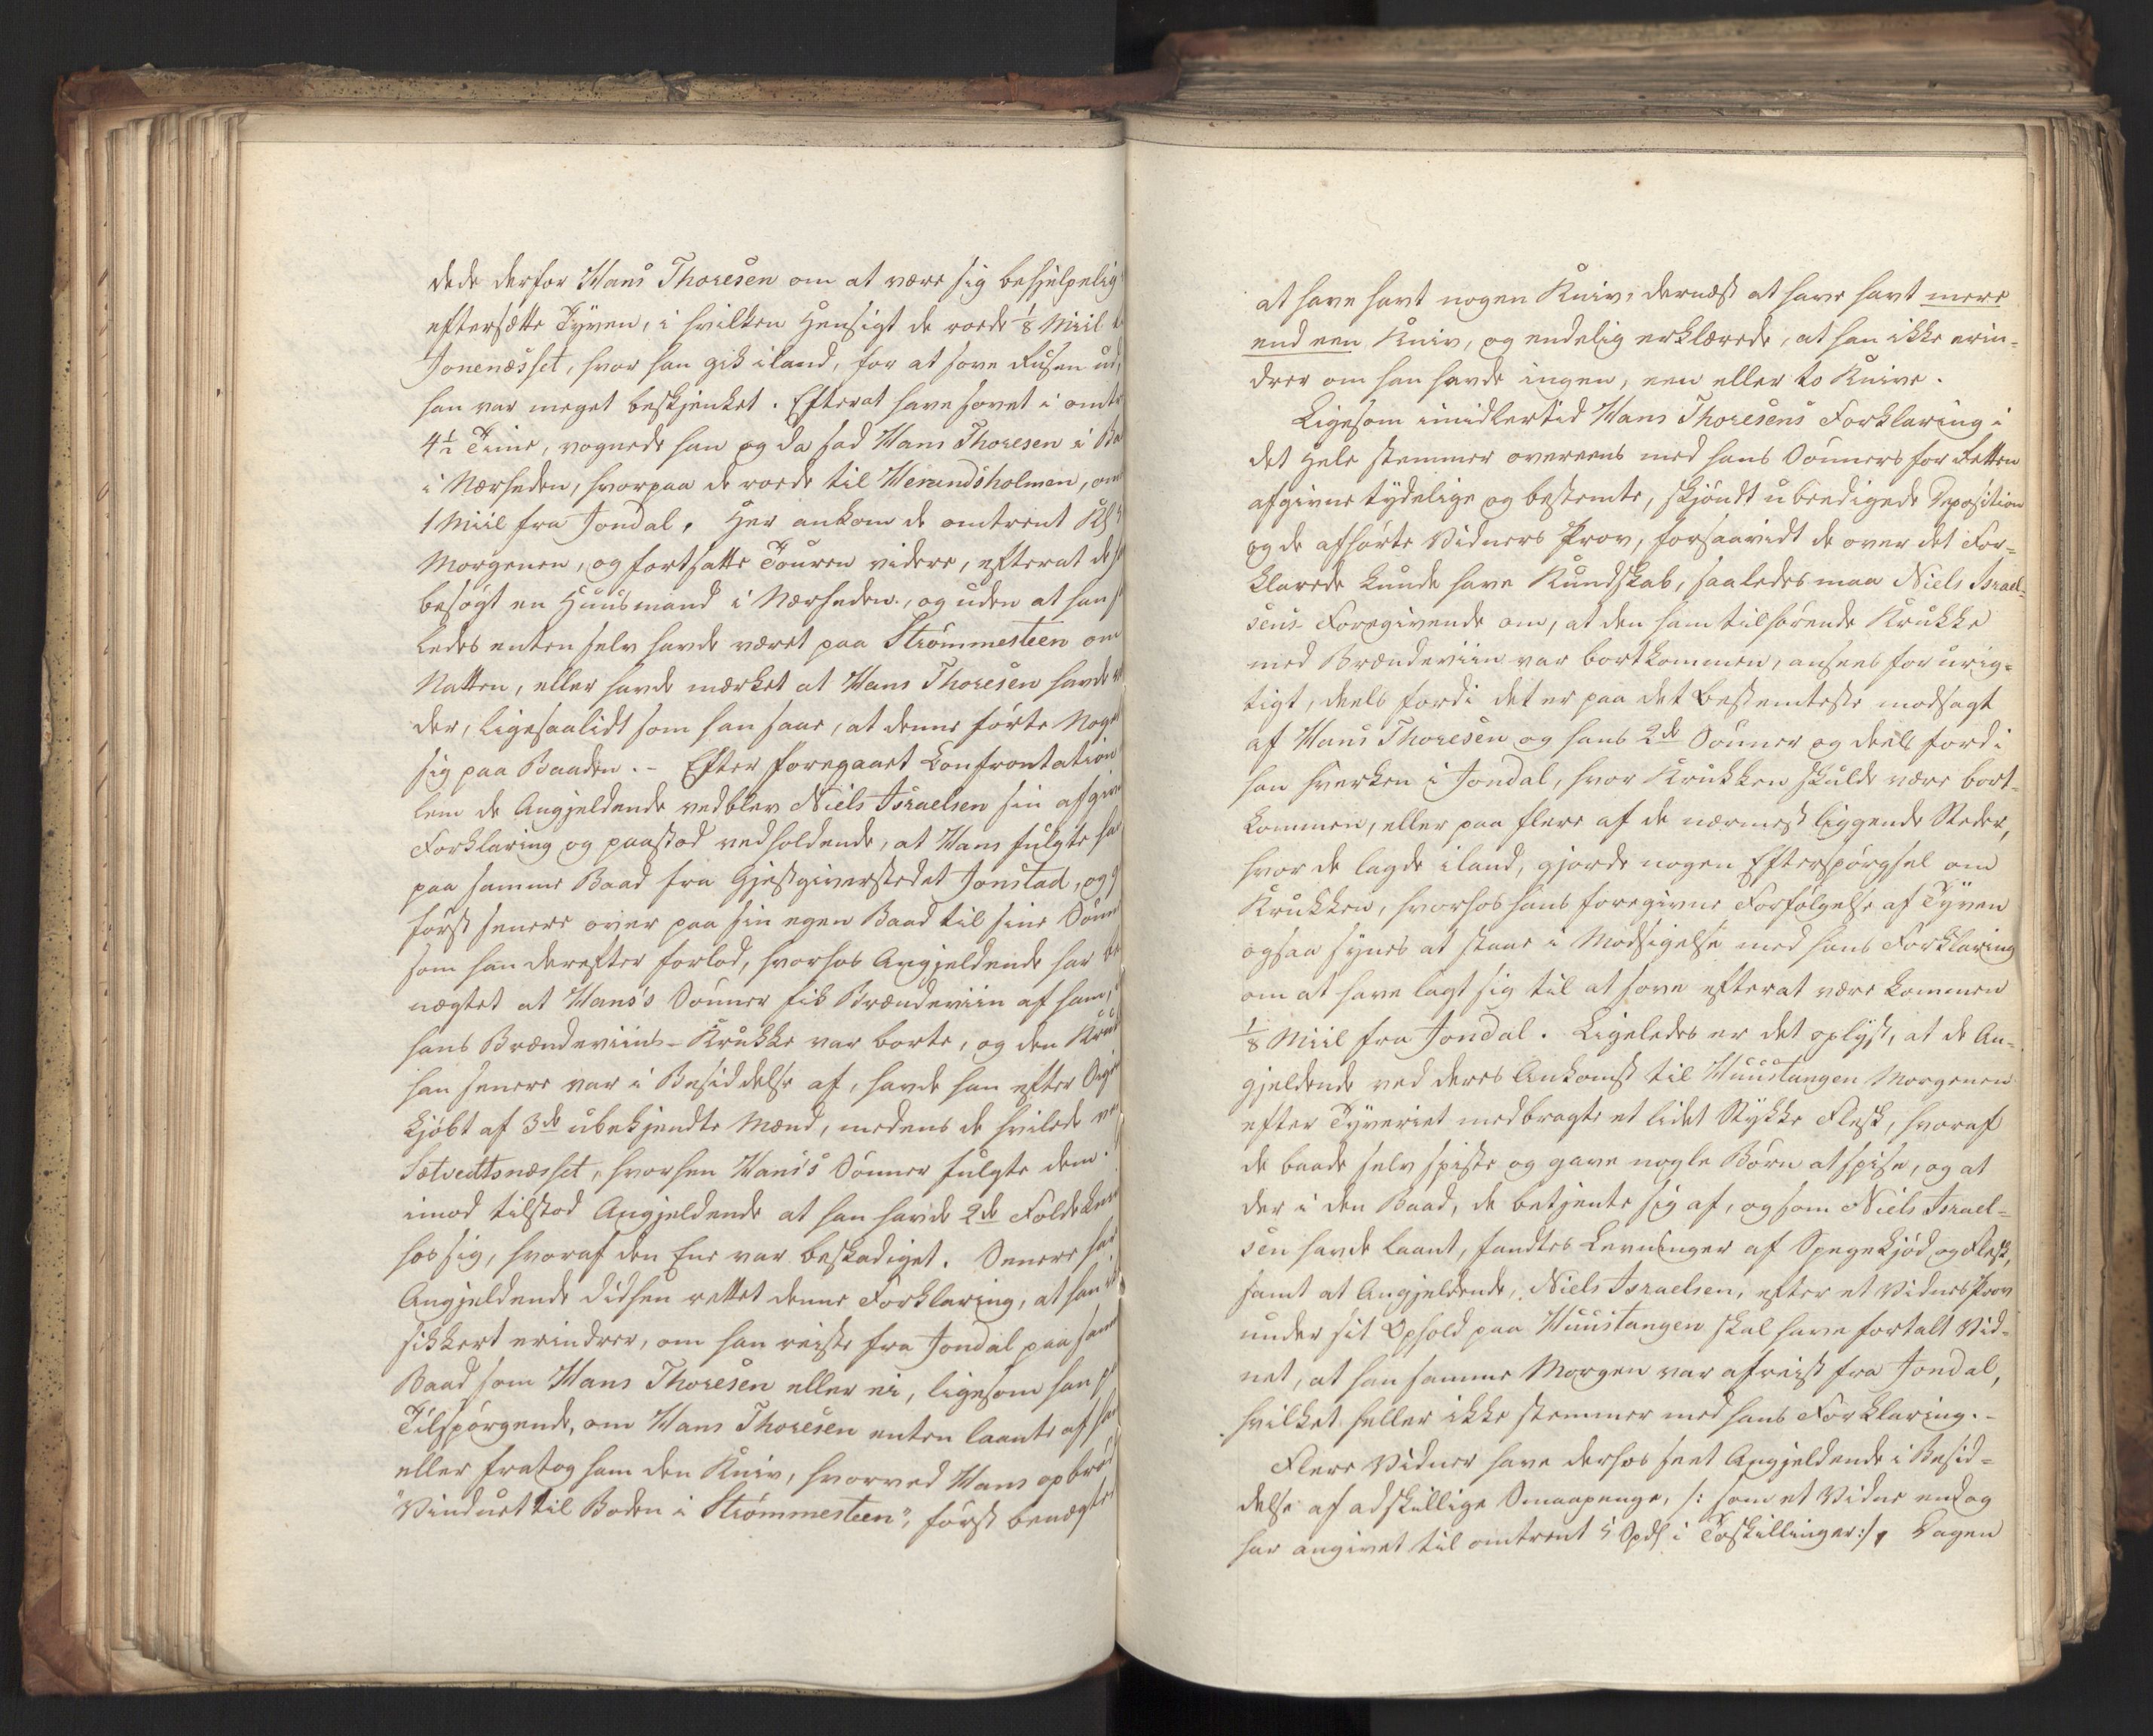 dede derfor Hans Thoresen om at være sig behjelpelig
eftersætte Tyven, i hvilken Hensigt de roede 1/8 Miil
Jonenæsset, hvor han gik iland, for at sove Rusen ud,
han var meget beskjenket. Efterat have sovet i omtr
4½ Time, vognede han og da sad Hans Thoresen i Ba
i Nærheden, hvorpaa de roede til Herundsholmen, om
1 Miil fra Jondal. Her ankom de omtrent Kl
Morgenen, og fortsatte Touren videre, efterat de
besøgt en Huusmand i Nærheden, og uden at han
ledes enten selv havde været paa Strømmesteen om
Natten, eller havde mærket at Hans Thoresen havde
der, ligesaalidt som han saae, at denne førte Noge
sig paa Baaden. - Efter foregaaet Confrontation
lem de Angjeldende vedblev Niels Israelsen sin afgiv
Forklaring og paastod vedholdende, at Hans fulgte ha
paa samme Baad fra Gjestgiverstedet Jonstad, og
først senere over paa sin egen Baad til sine Sønn
som han derefter forlod, hvorhos Angjeldende har
nægtet at Hans's Sønner fik Brændeviin af ham,
hans Brændeviins-Krukke var borte, og den Kruk
han senere var i Besiddelse af, havde han efter
kjøbt af 3de ubekjendte Mænd, medens de hvilede
Sætvedtsnæsset, hvorhen Hans's Sønner fulgte dem.
imod tilstod Angjeldende at han havde 2de Foldekni
hos sig, hvoraf den Ene var beskadiget. Senere har
Angjeldende didhen rettet denne Forklaring, at han
sikkert erindrer, om han reiste fra Jondal paa sam
Baad som Hans Thoresen eller ei, ligesom han
Tilspørgende, om Hans Thoresen enten laante af ha
eller fratog ham den Kniv, hvorved Hans opbrød
"Vinduet til Boden i Strømmesteen", først benægte
at have havt nogen Kniv, dernæst at have havt mere
end een Kniv, og endelig erklærede, at han ikke erin=
drer om han havde ingen, een eller to Knive.
Ligesom imidlertid Hans Thoresens Forklaring i
det Hele stemmer overeens med hans Sønners for Retten
afgivne tydelige og bestemte, skjøndt ubeedigede Deposition
og de afhørte Vidners Prov, forsaavidt de over det For=
klarede kunde have Kundskab, saaledes maa Niels Israel=
sens Foregivende om, at den ham tilhørende Krukke
med Brændeviin var bortkommen, ansees for urig=
tigt, deels fordi det er paa det Bestemteste modsagt
af Hans Thoresen og hans 2de Sønner og deels fordi
han hverken i Jondal, hvor Krukken skulde være bort=
kommen, eller paa flere af de nærmest liggende Steder,
hvor de lagde iland, gjorde nogen Efterspørgsel om
Krukken, hvorhos hans foregivne Forfølgelse af Tyven
ogsaa synes at staae i Modsigelse med hans Forklaring
om at have lagt sig til at sove efterat være kommen
1/8 Miil fra Jondal. Ligeledes er det oplyst, at de An=
gjeldende ved deres Ankomst til Huustangen Morgenen
efter Tyveriet medbragte et lidet Stykke Flesk, hvoraf
de baade selv spiste og gave nogle Børn at spise, og at
der i den Baad, de betjente sig af, og som Niels Israel=
sen havde laant, fandtes Levninger af Spegekjød og Flesk,
samt at Angjeldende, Niels Israelsen, efter et Vidnes Prov
under sit Ophold paa Huustangen skal have fortalt Vid=
net, at han samme Morgen var afreist fra Jondal,
hvilket heller ikke stemmer med hans Forklaring. -
Flere Vidner have derhos seet Angjeldende i Besid=
delse af adskillige Smaapenge, /: som et Vidne endog
har angivet til omtrent 5 Spd i Toskillinger :/. Dagen